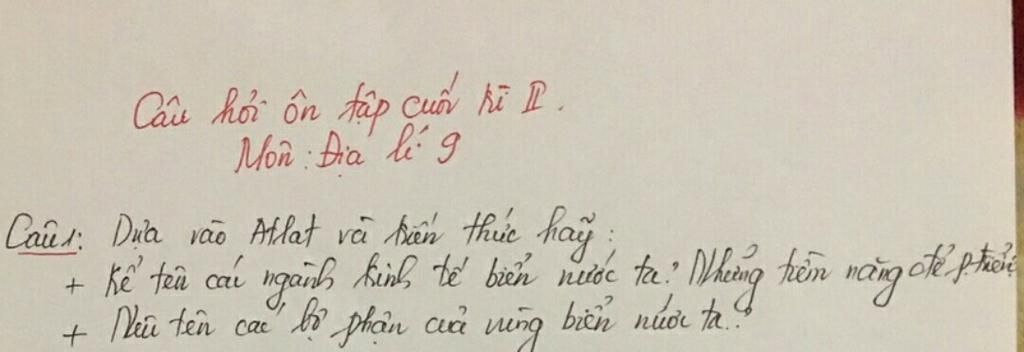 Câu hỏi ôn tập cuối kì II.
Môn: Địa lí 9
Câu 1: Dựa vào Atlat và kiến thức hãy:
+ Kể tên các ngành kinh tế biển nước ta? Những tiềm năng để p.triển
+ Nêu tên các bộ phận của vùng biển nước ta.?